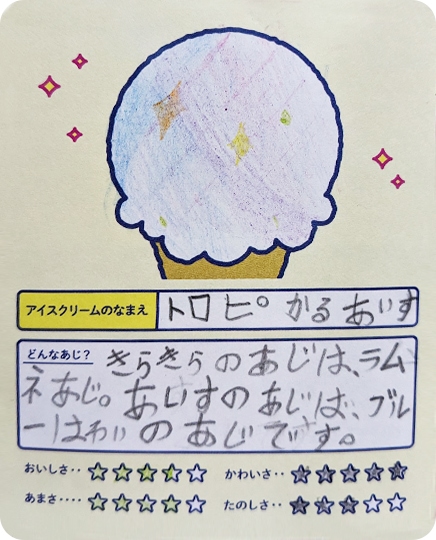 アイスクリームのなまえ トロピかるあいす
どんなあじ? きらきらのあじは、ラム
ネあじ。あいすのあじは、ブル
ーはわいのあじです。
おいしさ‥ ★★★★☆ かわいさ‥ ★★★★★
あまさ‥‥ ★★★★☆ たのしさ‥ ★★★☆☆